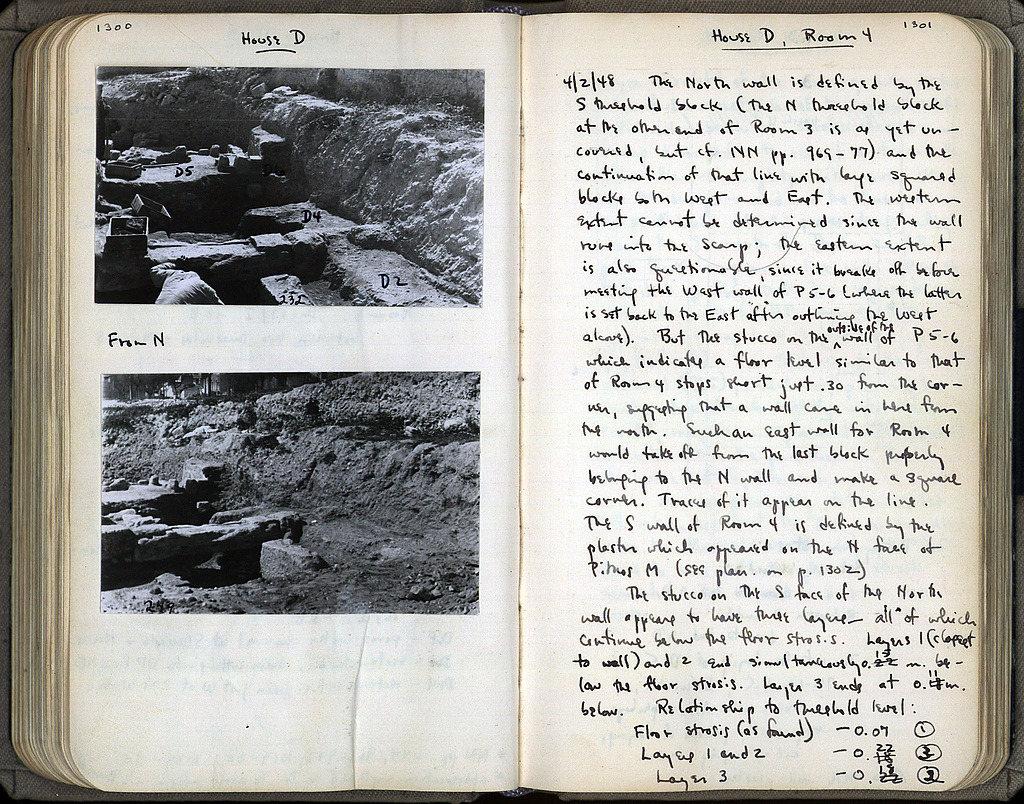 1300
House D
D5
D4
D2
232
From N
249
1301
House D, Room 4
4/2/48 The North wall is defined by the
S threshold block (the N threshold block
at the other end of Room 3 is as yet un-
covered, but cf. NN pp. 969-77) and the
continuation of that line with large squared
blocks both West and East. The western
extent cannot be determined since the wall
runs into the scarp; the eastern extent
is also questionable, since it breaks off before
meeting the West wall of P 5-6 (where the latter
is set back to the East after outlining the West
alcove). But the stucco on the outside of the wall of P 5-6
which indicates a floor level similar to that
of Room 4 stops short just .30 from the cor-
ner, suggesting that a wall came in here from
the north. Such an East wall for Room 4
would take off from the last block properly
belonging to the N wall and make a square
corner. Traces of it appear on the line.
The S wall of Room 4 is defined by the
plaster which appeared on the N face of
Pithos M (see plan on p. 1302)
The stucco on the S face of the North
wall appears to have three layers - all of which
continue below the floor strosis. Layers 1 (closest
to wall) and 2 end simultaneously 0. m. be-
low the floor strosis. Layer 3 ends at 0. m.
below. Relationship to threshold level:
Floor strosis (as found) - 0.07 1
Layers 1 and 2 - 0.22
Layer 3 - 0.